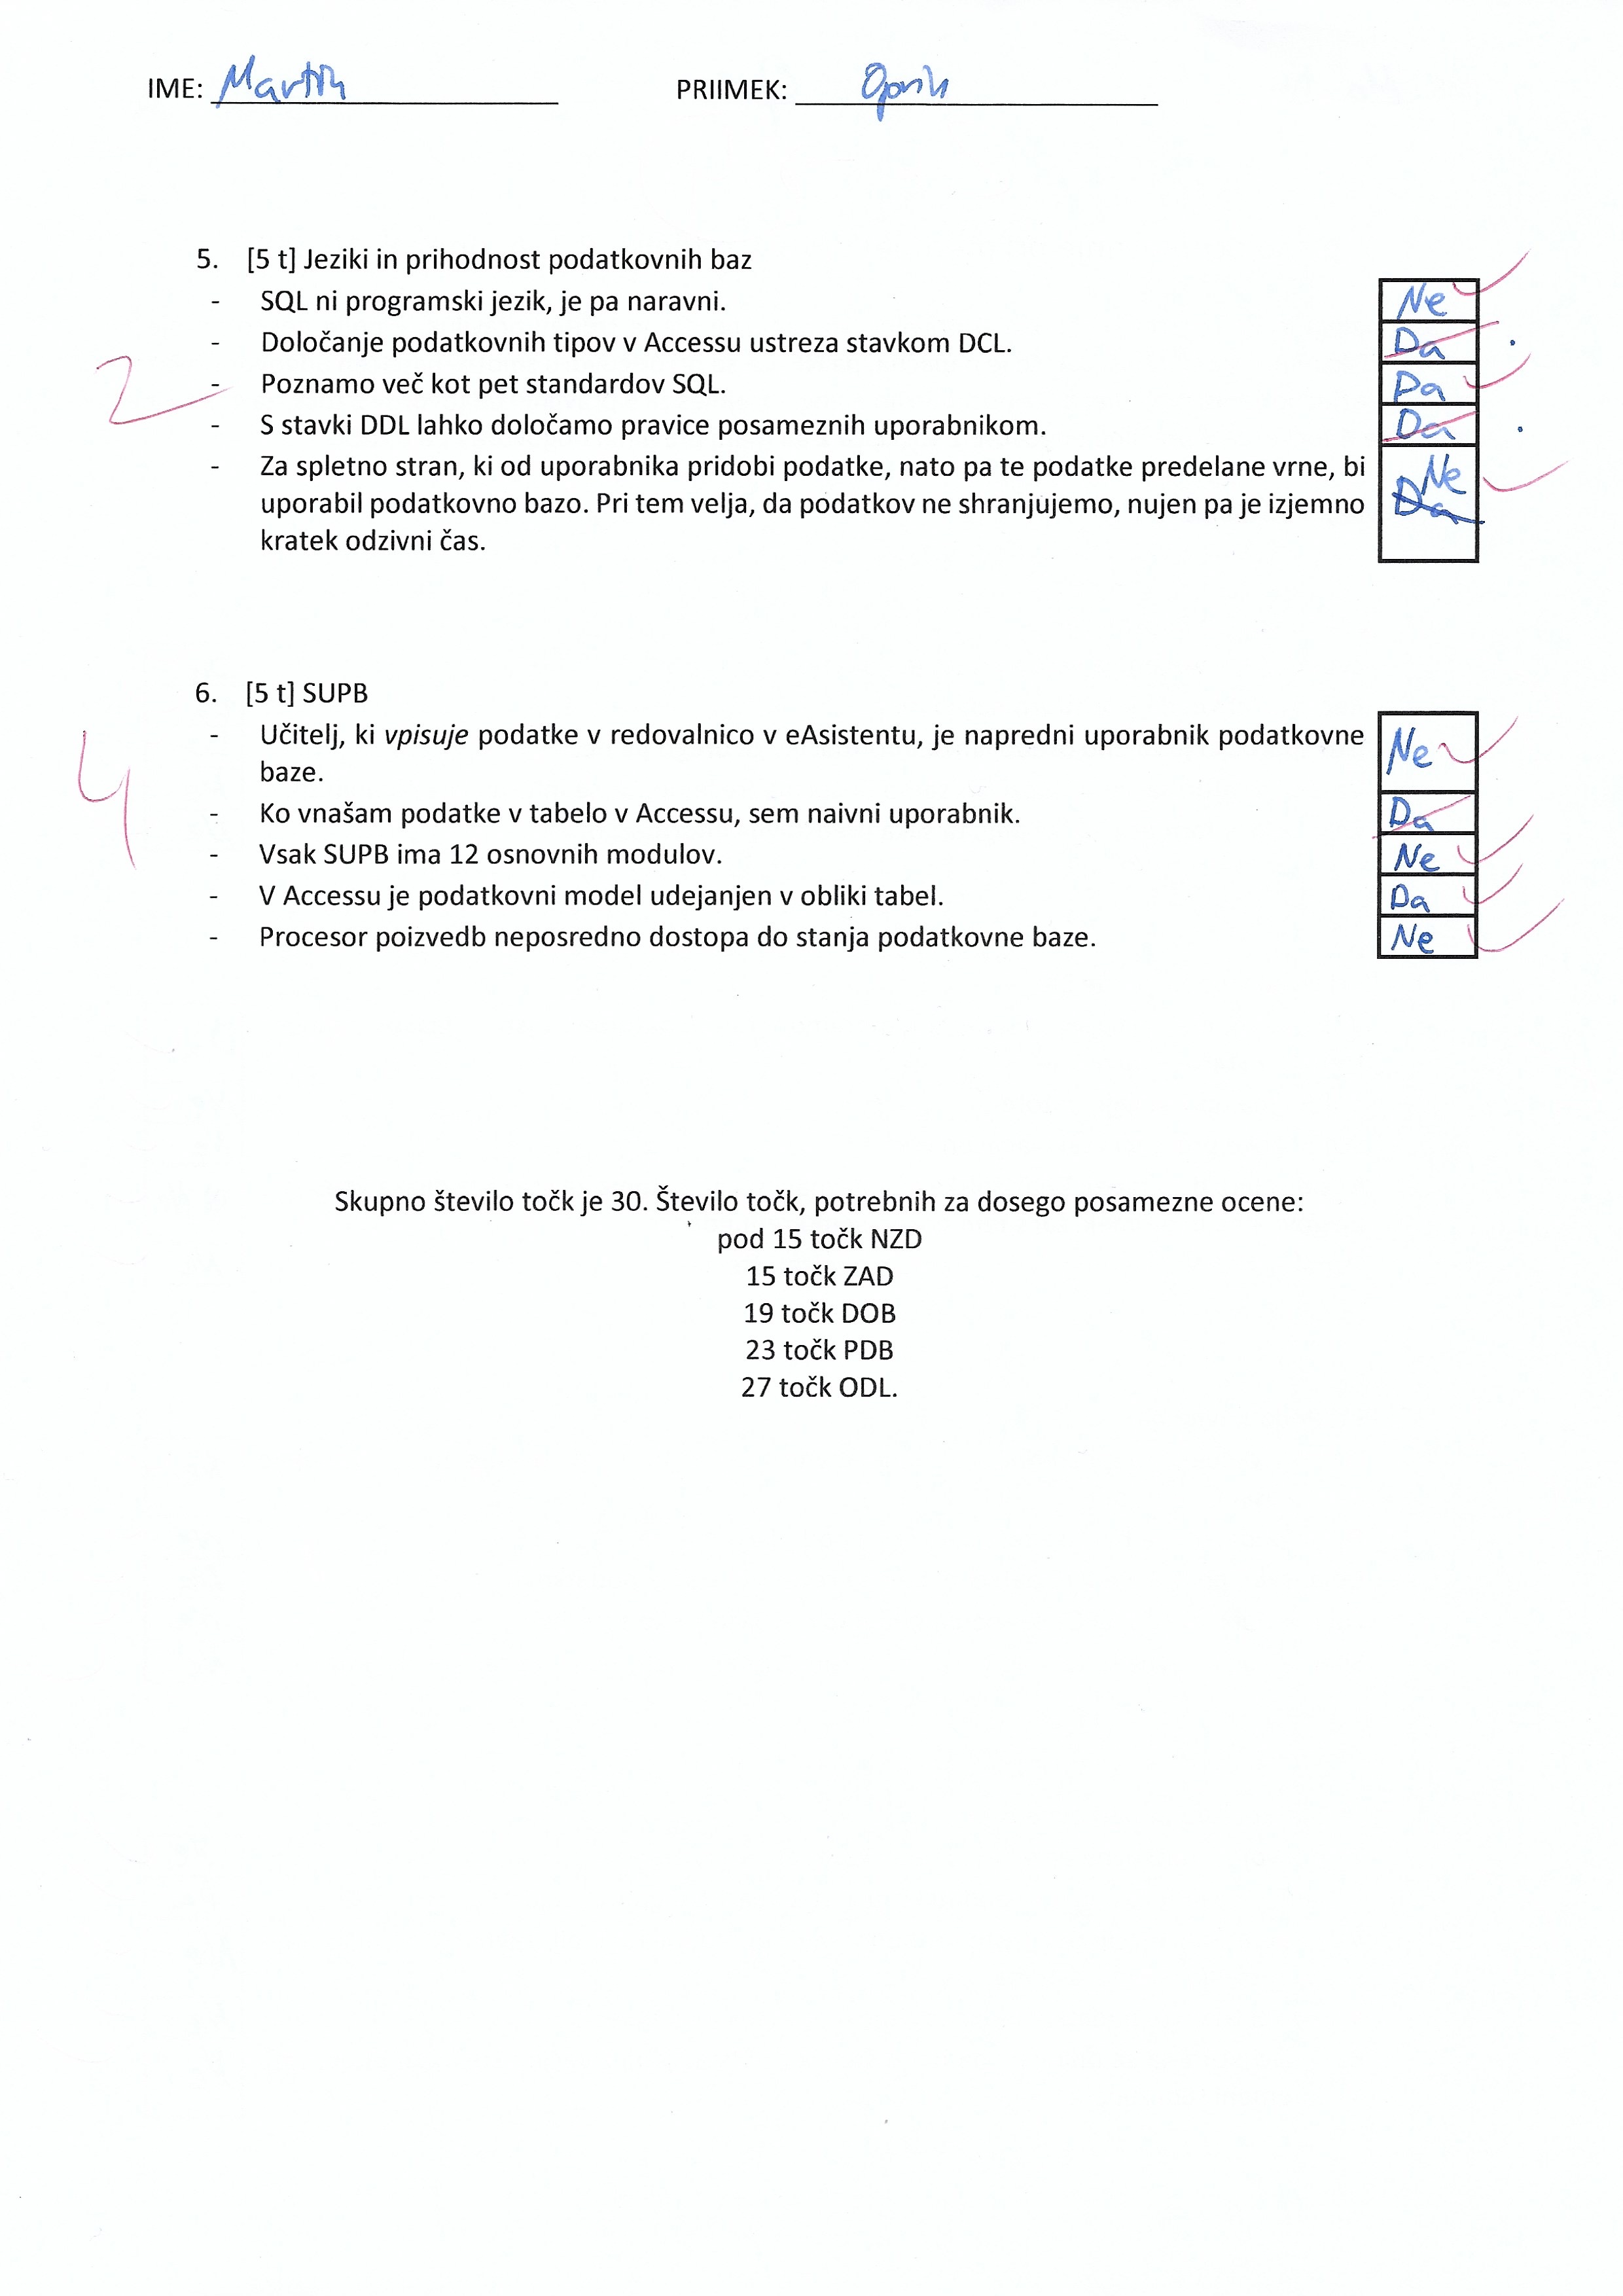 IME: Martin PRIIMEK:
5. [5 t] Jeziki in prihodnost podatkovnih baz
- SQL ni programski jezik, je pa naravni. Ne
- Določanje podatkovnih tipov v Accessu ustreza stavkom DCL. Da
2
- Poznamo več kot pet standardov SQL. Da
- S stavki DDL lahko določamo pravice posameznih uporabnikom. Da
- Za spletno stran, ki od uporabnika pridobi podatke, nato pa te podatke predelane vrne, bi Ne
uporabil podatkovno bazo. Pri tem velja, da podatkov ne shranjujemo, nujen pa je izjemno Da
kratek odzivni čas.
6. [5 t] SUPB
- Učitelj, ki vpisuje podatke v redovalnico v eAsistentu, je napredni uporabnik podatkovne Ne
baze.
4
- Ko vnašam podatke v tabelo v Accessu, sem naivni uporabnik. Da
- Vsak SUPB ima 12 osnovnih modulov. Ne
- V Accessu je podatkovni model udejanjen v obliki tabel. Da
- Procesor poizvedb neposredno dostopa do stanja podatkovne baze. Ne
Skupno število točk je 30. Število točk, potrebnih za dosego posamezne ocene:
pod 15 točk NZD
15 točk ZAD
19 točk DOB
23 točk PDB
27 točk ODL.